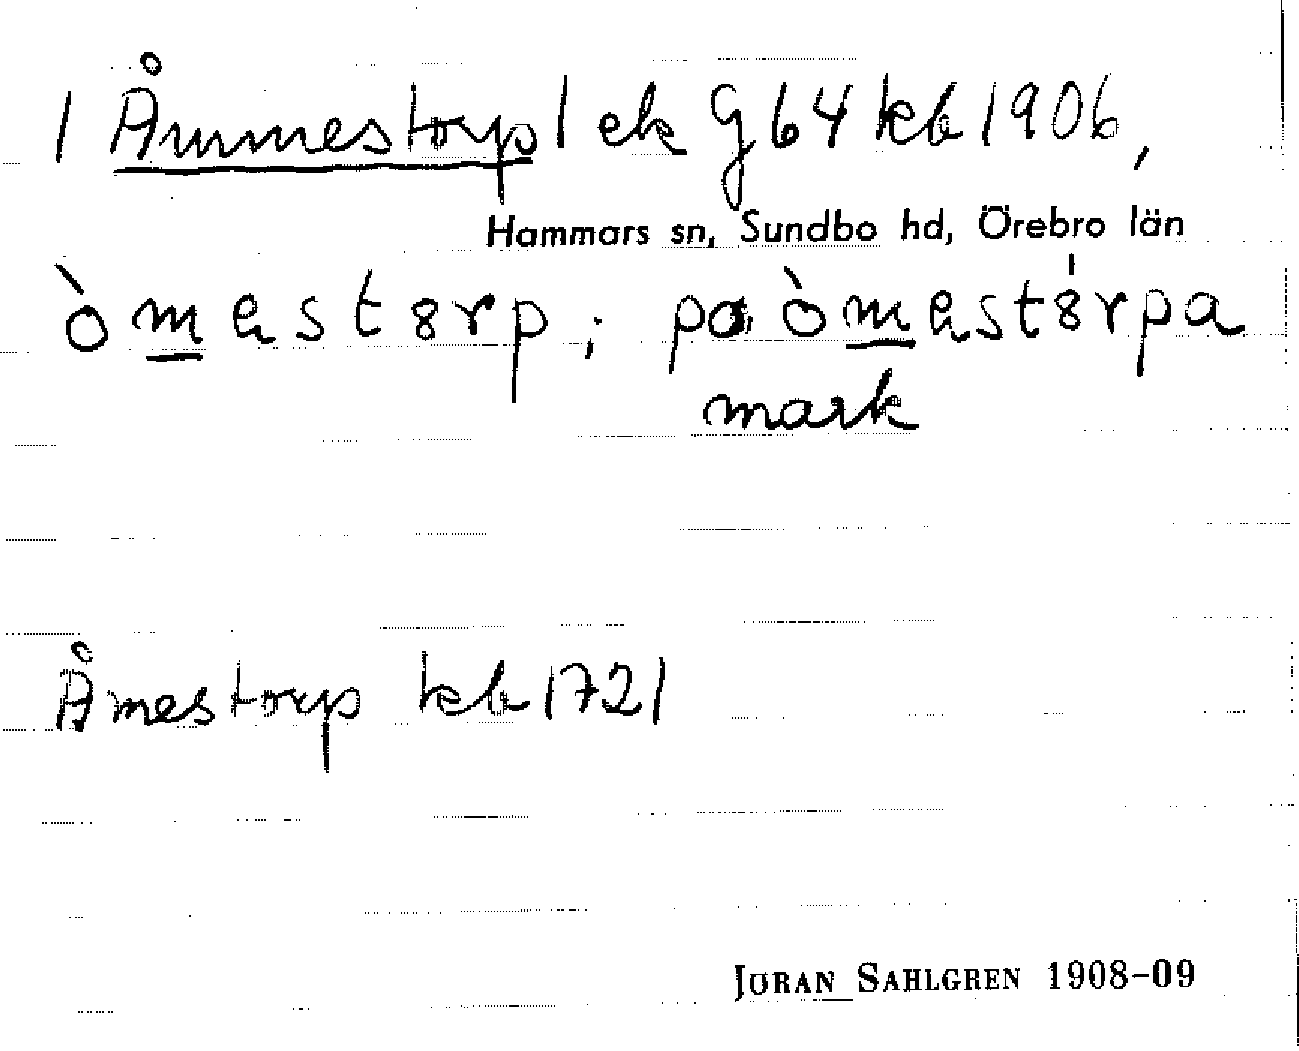 | Åmmestorp | ek G 64 kb 1906,
Hammars sn, Sundbo hd, Örebro län
òmestȣrp; på òmestȣ́rpa
mark
Åmestorp kb 1721
JÖRAN SAHLGREN 1908–09